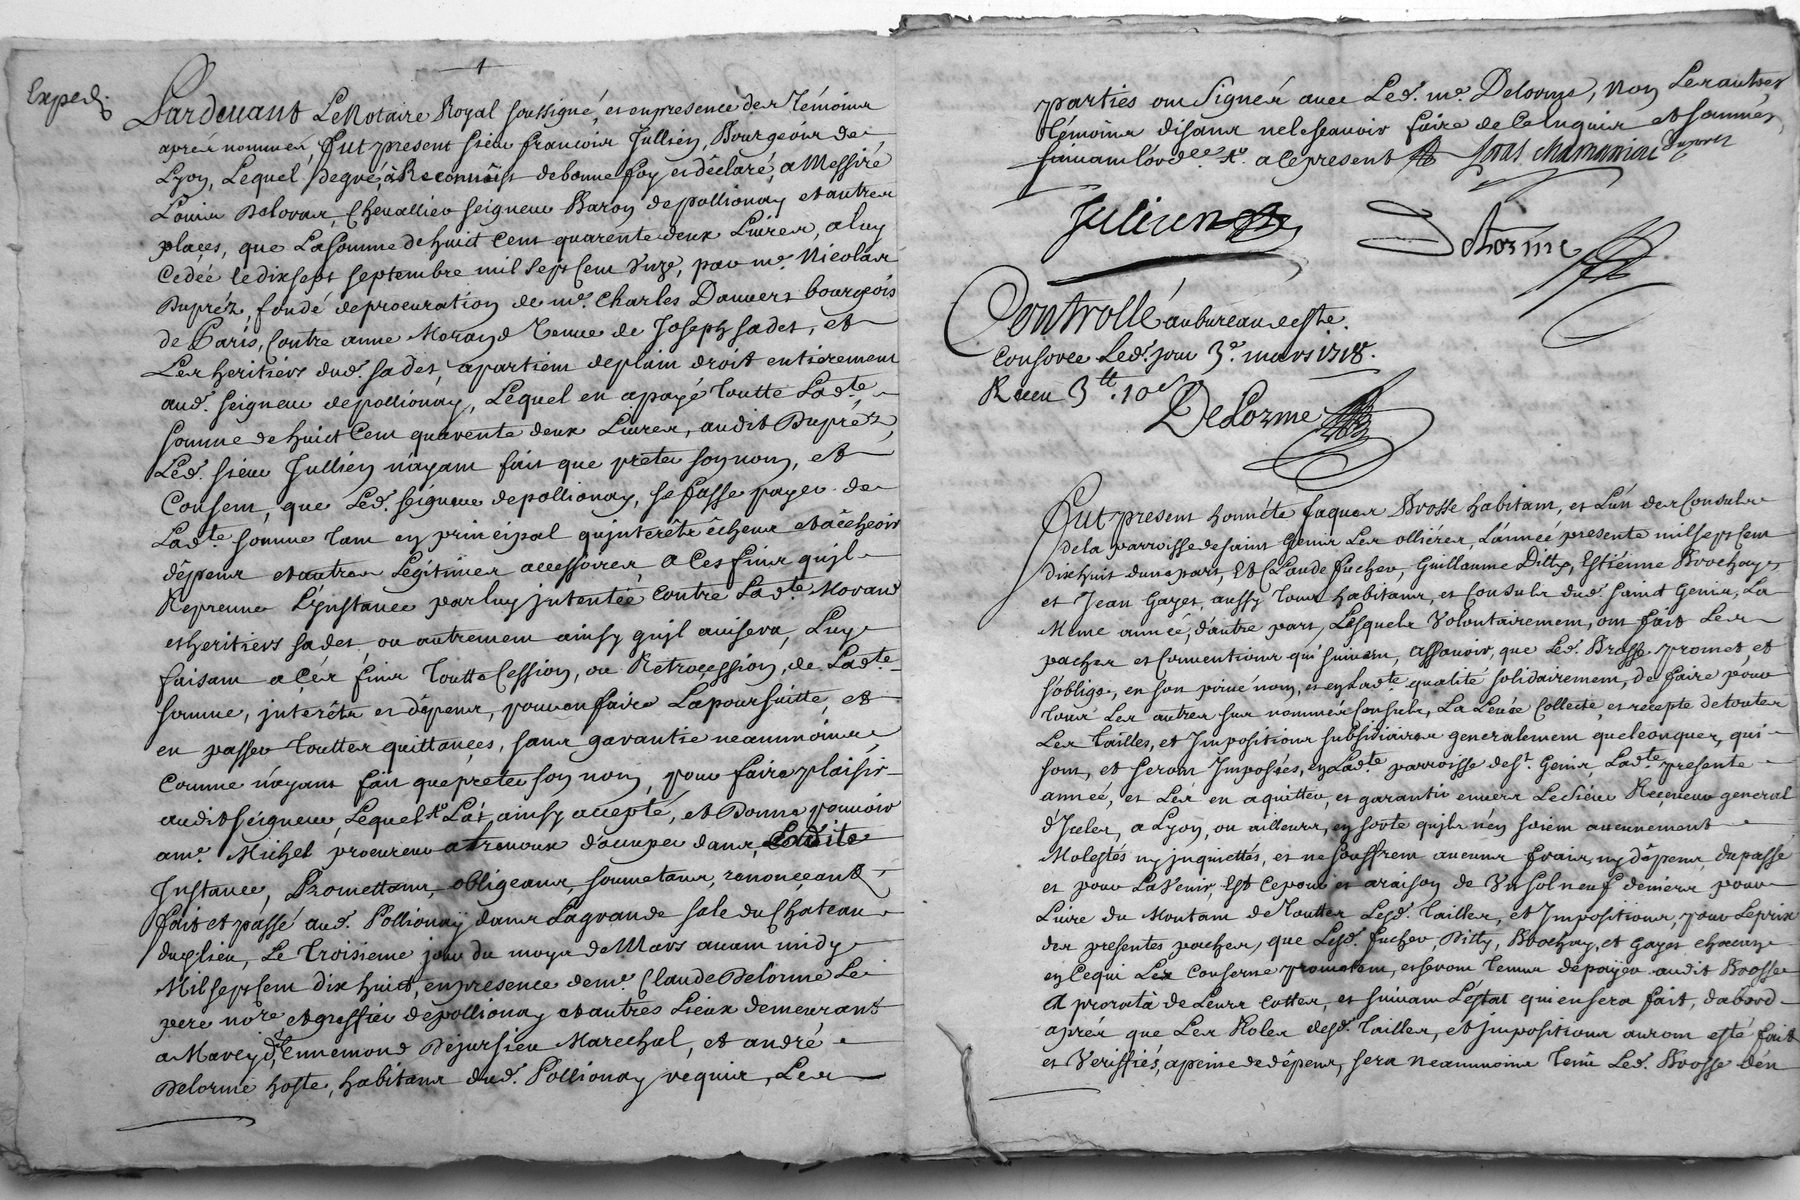 1
Exped.
Pardevant Le Notaire Royal soussigné, et enpresence des Témoins
aprés nommés, fut present sieur francois Jullien, Bourgeois de
Lyon, Lequel Degré, à Reconnoist debonne foy et dêclaré, a Messire
Louis Delovar, Chevallier seigneur Baron depollionay et autres
places, que La somme de huict Cent quarente deux Livres, a luy
Cedée le dixsept septembre mil sept Cent Unze, par me. Nicolas
Dupréz, fondé deprocuration de me. Charles Dauvers bourgeois
de Paris, Contre anne Morand Veuve de Joseph sadet, et
Les heritiers dud. sadet, apartient deplain droit entierement
aud. seigneur depollionay, Lequel en apayé toutte Ladte.
somme de huict Cent quarente deux Livres, audit Dupréz,
Led. sieur Jullien n'ayant fait que preter son nom, et
Consent, que Led. seigneur depollionay, se fasse payer de
Ladte. somme tant en principal qu'interêts êcheus et a êcheoir
dêpens et autres Legitimes accessoires, a Ces fins qu'jl
Reprenne L'jnstance par luy jntentée contre Ladte. Morand
et heritiers sadet, ou autrement ainsy qu'jl avisera, Luy
faisant a Cés fins toutte Cession, ou Retrocession, de Ladte.
somme, jnterêts et dêpens, pour en faire La poursuitte, et
en passer touttes quittances, sans garantie neanmoins
Comme n'ayant fait que preter son nom, pour faire plaisir
audit seigneur, Lequel Sr. L'at ainsy accepté, et Donne pouvoir
a me. Michel procureur a trenoux d'ocuper dans Ladite
Jnstance, Promettans, obligeans, soumetans, renonceans
fait et passé aud. Pollionay dans La grande sale du Chateau
dud lieu, Le troisieme jour du moys de Mars avant midy
Mil sept Cent dix huict, en presence de me. Claude Delorme Le
pere nore. et greffier depollionay et autres Lieux demeurant
a Marcy, Ennemond Dejussieu Marechal, et andré
Delorme hoste, habitans dud. Pollionay requis, Les
parties ont Signés avec Led. me. Delorme, Non Les autres
témoins disans ne le scavoir faire de Ce Enquis et sommés,
suivant l'ord.ce Rle. a Ce present
Jullien
Delorme
Controllé au bureau deste.
Consorce Led. jour 3e. mars 1718.
Receu 3 tt. 10 s
DeLorme
Fut present honnéte Jaques Brosse habitant, et L'ún des Consuls
de la parroisse de saint Genis Les ollières, L'année presente mil sept Cent
dixhuit dune part, Et Claude fucher, Guillaume Ditty, Estienne Brochay,
et Jean Gayet, aussy tous habitans, et Consuls dud. saint Genis, La
Meme année, d'autre part, Lesquels Volontairement, ont fait Les
paches et Conventions qui suivent, assavoir, que Led. Brosse promet, et
s'oblige, en son privé nom, et en Ladte. qualité solidairement, de faire pour
tous Les autres sus nommés Consuls, La Levée Collecte, et recepte de toutes
Les tailles, et Jmpositions subsidiaires generalement quelconques, qui
sont, et seront Jmposées, en Ladte. parroisse de st. Genis, Ladte. presente
année, et Lés en aquitter, et garantir envers Le Sieur Receveur general
d'Jceles, a Lyon, ou ailleurs, en sorte qu'jls n'en soient aucunement
Molestés ny jnquiettés, et ne souffrent aucuns frais, ny dêpens, du passé
et pour L'avenir, Est Ce pour et a raison de Un sol neuf deniers pour
Livre du Montant de touttes Lesd. tailles, et Jmpositions, pour Le prix
des presentes paches, que Lesd. fucher, Ditty, Brochay, et Gayet chacun
en Ce qui Les Conserne promettent, et seront tenus de payer audit Brosse
A prorata de Leurs cottes, et suivant L'êstat qui en sera fait, d'abord
aprés que Les Roles desd. tailles, et jmpositions auront esté faits
et Veriffiés, a peine de dêpens, sera neanmoins tenû Led. Brosse d'én